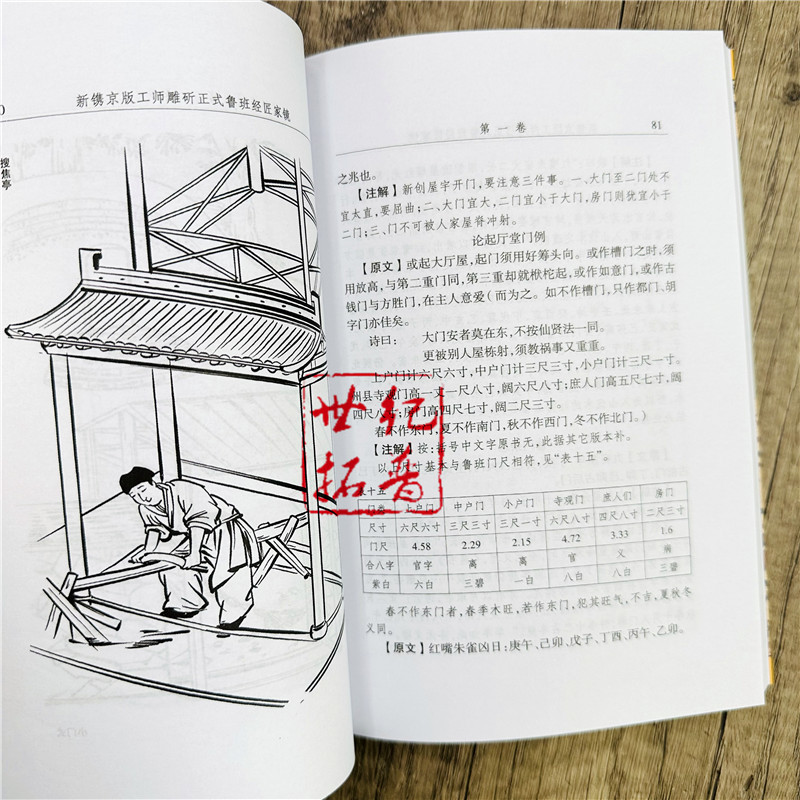 新镌京版工师雕斫正式鲁班经匠家镜
搜焦亭
第一卷 81
之兆也。
【注解】新创屋宇开门,要注意三件事。一、大门至二门处不
宜太直,要屈曲;二、大门宜大,二门宜小于大门,房门则犹宜小于
二门;三、门不可被人家屋脊冲射。
论起厅堂门例
【原文】或起大厅屋,起门须用好筹头向。或作槽门之时,须
用放高,与第二重门同,第三重却就栿柁起,或作如意门,或作古
钱门与方胜门,在主人意爱(而为之。如不作槽门,只作都门、胡
字门亦佳矣。
诗曰: 大门安者莫在东,不按仙贤法一同。
更被别人屋栋射,须教祸事又重重。
上户门计六尺六寸,中户门计三尺三寸,小户门计三尺一寸,
州县寺观门高一丈一尺八寸,阔六尺八寸;庶人门高五尺七寸,阔
四尺八寸;房门高四尺七寸,阔二尺三寸。
春不作东门,夏不作南门,秋不作西门,冬不作北门。)
【注解】按:括号中文字原书无,此据其它版本补。
以上尺寸基本与鲁班门尺相符,见“表十五”。
表十五
门类 上户门 中户门 小户门 寺观门 庶人们 房门
尺寸 六尺六寸 三尺三寸 三尺一寸 六尺八寸 四尺八寸 二尺三寸
门尺 4.58 2.29 2.15 4.72 3.33 1.6
合八字 官字 离 离 官 义 病
紫白 六白 三碧 一白 八白 八白 三碧
春不作东门者,春季木旺,若作东门,犯其旺气,不吉,夏秋冬
义同。
【原文】红嘴朱雀凶日:庚午、己卯、戊子、丁酉、丙午、乙卯。
世纪
拓普